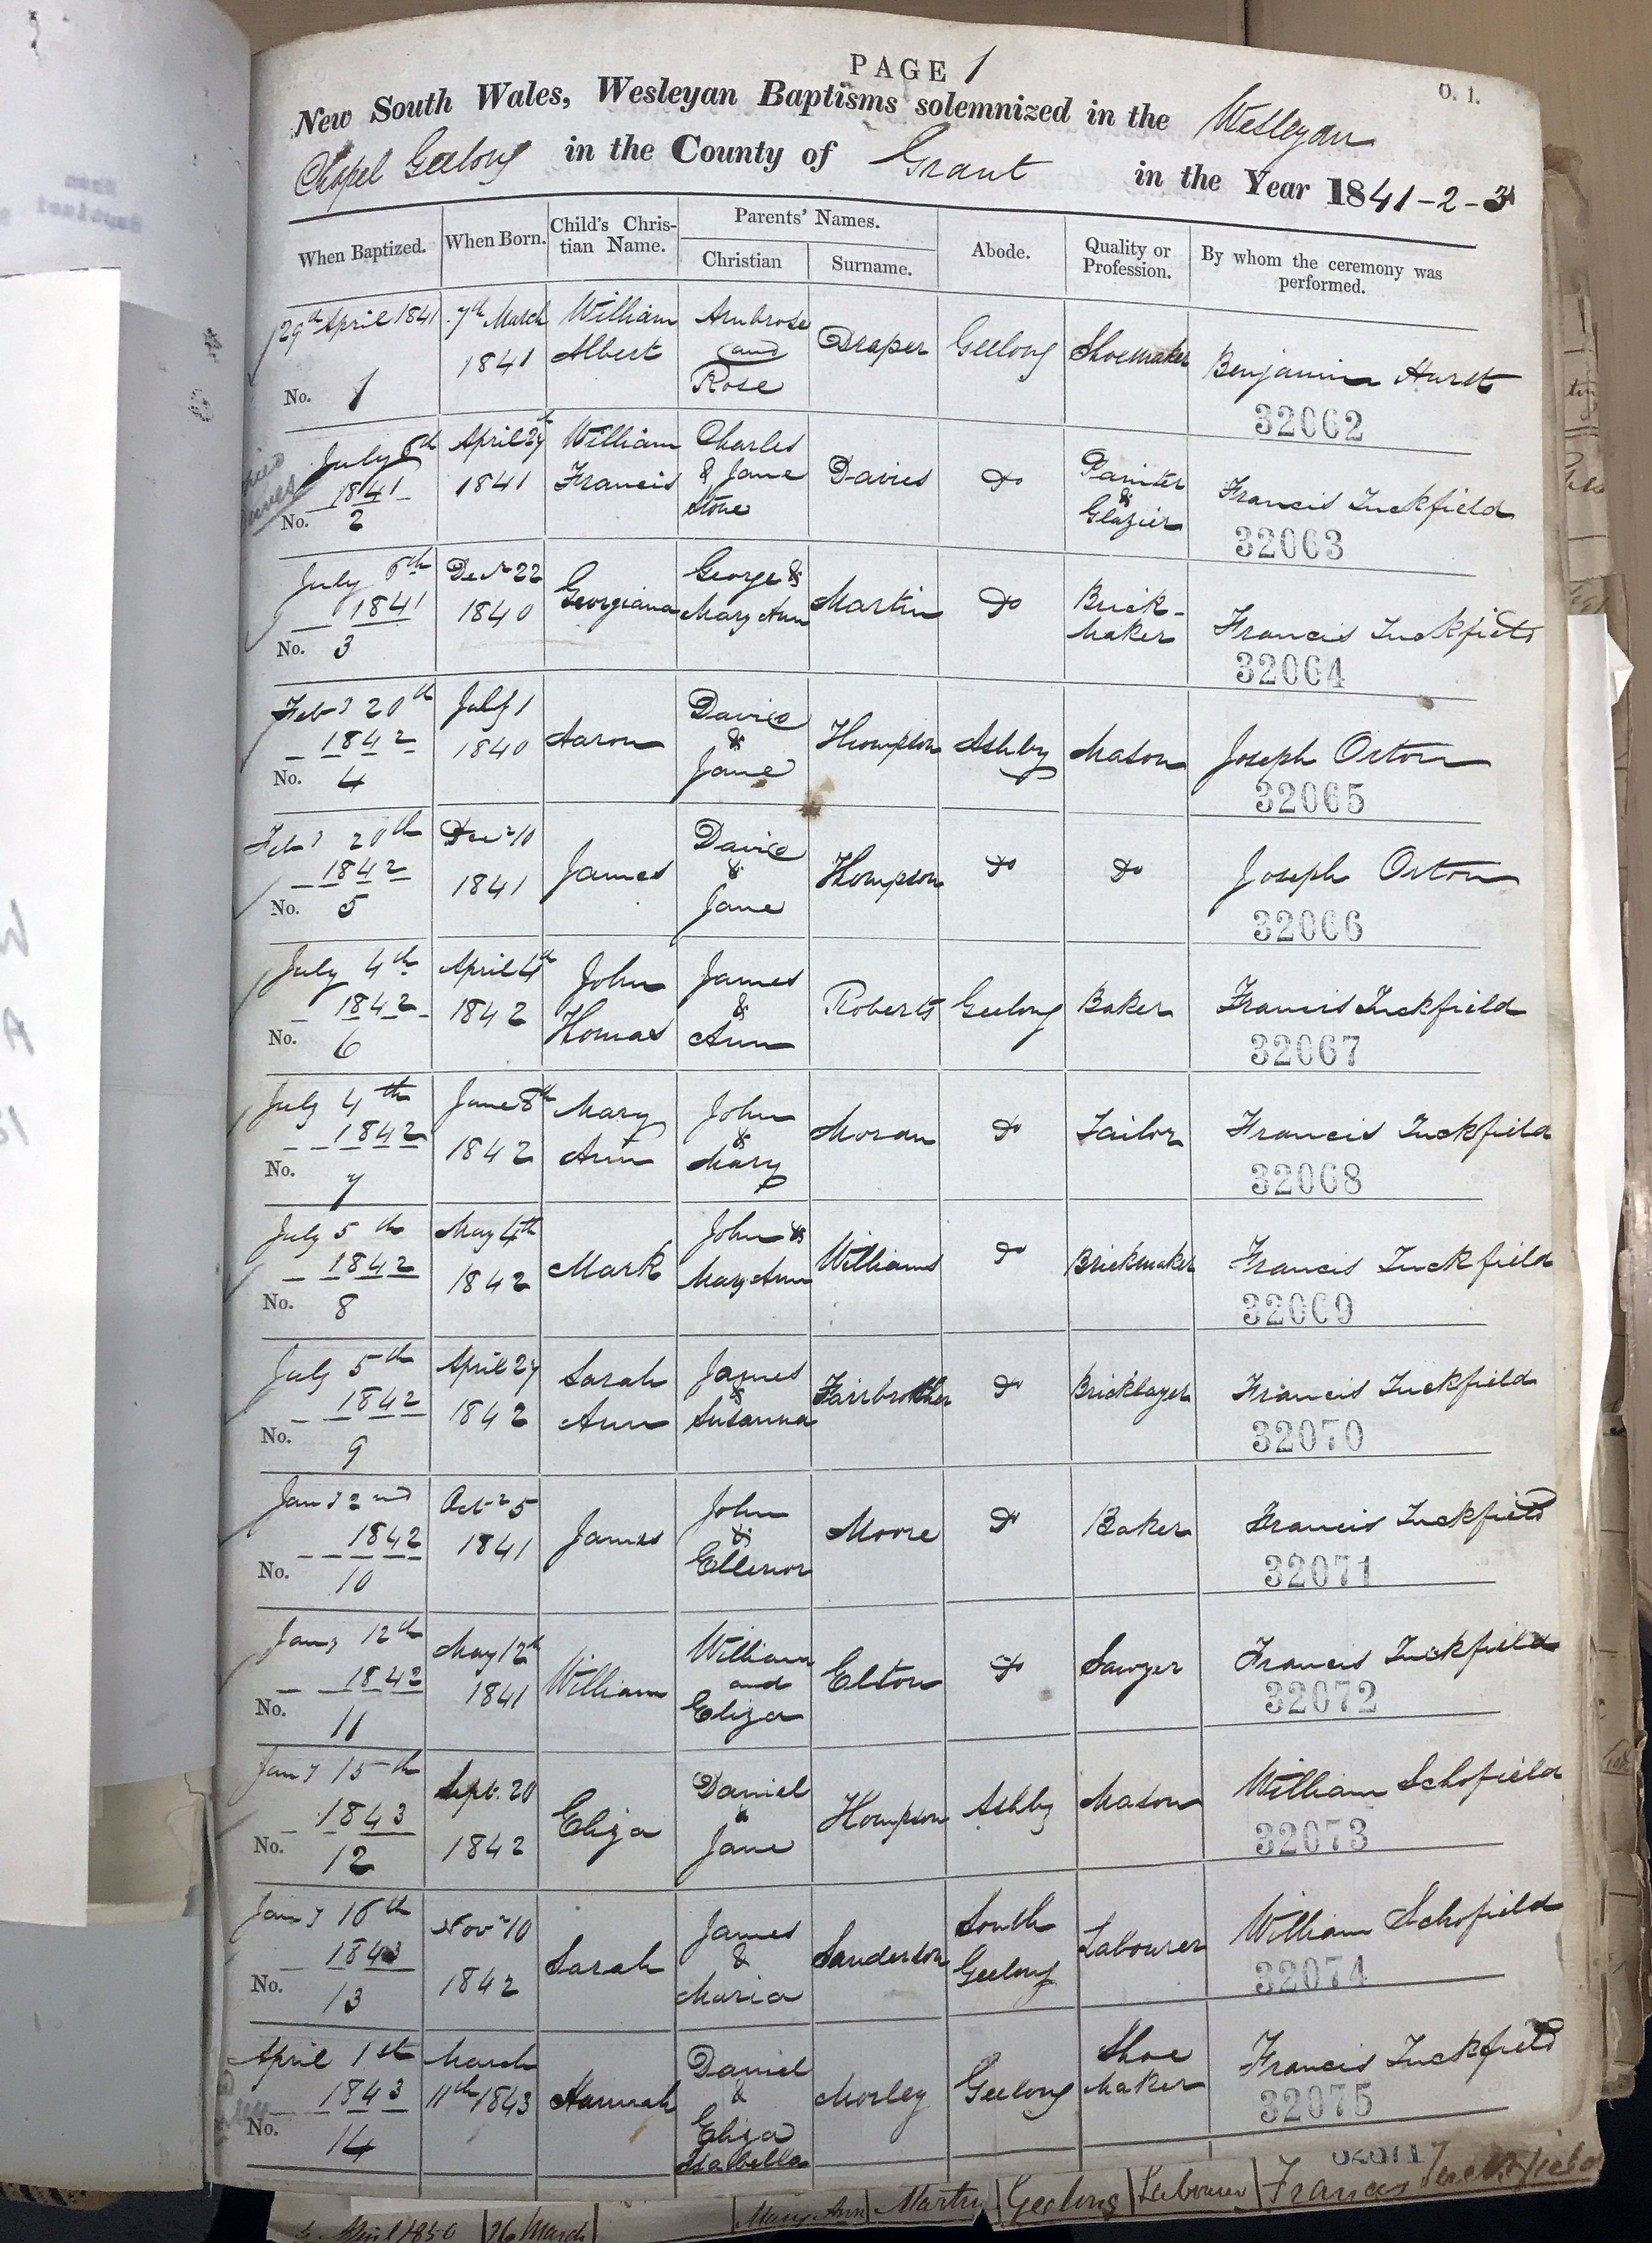 PAGE 1
O. 1.
New South Wales, Wesleyan Baptisms solemnized in the Wesleyan
Chapel Geelong in the County of Grant in the Year 1841-2-3
When Baptized. When Born. Child's Chris-tian Name. Parents' Names. Christian Surname. Abode. Quality or Profession. By whom the ceremony was performed.
29th April 1841 7th March William Ambrose Draper Geelong Shoemaker Benjamin Hurst
1841 Albert and
No. 1 Rose
32062
July 6th April 27th William Charles Davies Do Painter Francis Tuckfield
1841 1841 Francis & Jane &
No. 2 Stone Glazier
32063
July 6th Decr 22 Georgiana George & Martin Do Brick- Francis Tuckfield
1841 1840 Mary Ann Maker
No. 3
32064
Feby 20th July 1 Aaron David Thompson Ashby Mason Joseph Orton
1842 1840 &
No. 4 Jane
32065
Feby 20th Decr 10 James David Thompson Do Do Joseph Orton
1842 1841 &
No. 5 Jane
32066
July 4th April 4th John James Roberts Geelong Baker Francis Tuckfield
1842 1842 Thomas &
No. 6 Ann
32067
July 4th June 8th Mary John Moran Do Tailor Francis Tuckfield
1842 1842 Ann &
No. 7 Mary
32068
July 5th May 4th Mark John & Williams Do Brickmaker Francis Tuckfield
1842 1842 Mary Ann
No. 8
32069
July 5th April 27 Sarah James Fairbrother Do Bricklayer Francis Tuckfield
1842 1842 Ann &
No. 9 Susanna
32070
Jany 2nd Octr 5 James John Moore Do Baker Francis Tuckfield
1842 1841 &
No. 10 Ellenor
32071
Jany 12th May 12th William William Elton Do Sawyer Francis Tuckfield
1842 1841 and
No. 11 Eliza
32072
Jany 15th Sept. 20 Eliza Daniel Thompson Ashby Mason William Schofield
1843 1842 &
No. 12 Jane
32073
Jany 16th Novr 10 Sarah James Sanderson South Labourer William Schofield
1843 1842 & Geelong
No. 13 Maria
32074
April 1st March Hannah Daniel Morley Geelong Shoe Francis Tuckfield
1843 11th 1843 & Maker
No. 14 Eliza
Isabella
32075
April 1850 26 March Mary Ann Martin Geelong Labourer Francis Tuckfield